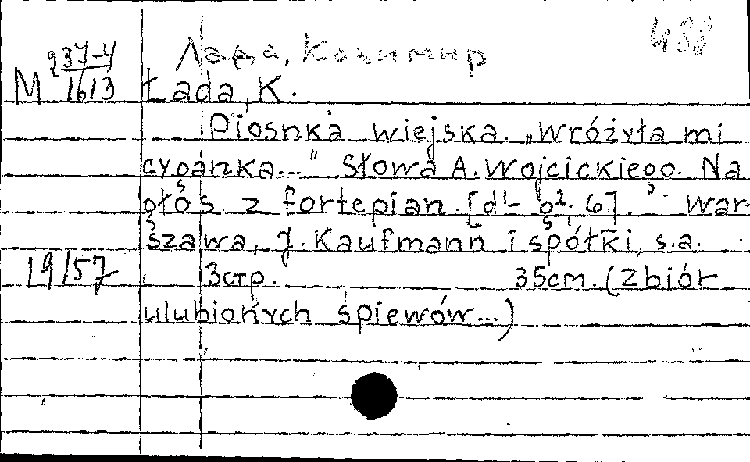 Лада, Казимир 488
М 237-4/1613 Łada, K.
Piosnka wiejska. „Wróżyła mi
cyganka..." Słowa A. Wojcickiego. Na
głos z fortepian. [d¹- g²; G]. War-
szawa, J. Kaufmann i spółki, s.a.
19157 3стр. 35cm. (Zbiór
ulubionych śpiewów...)